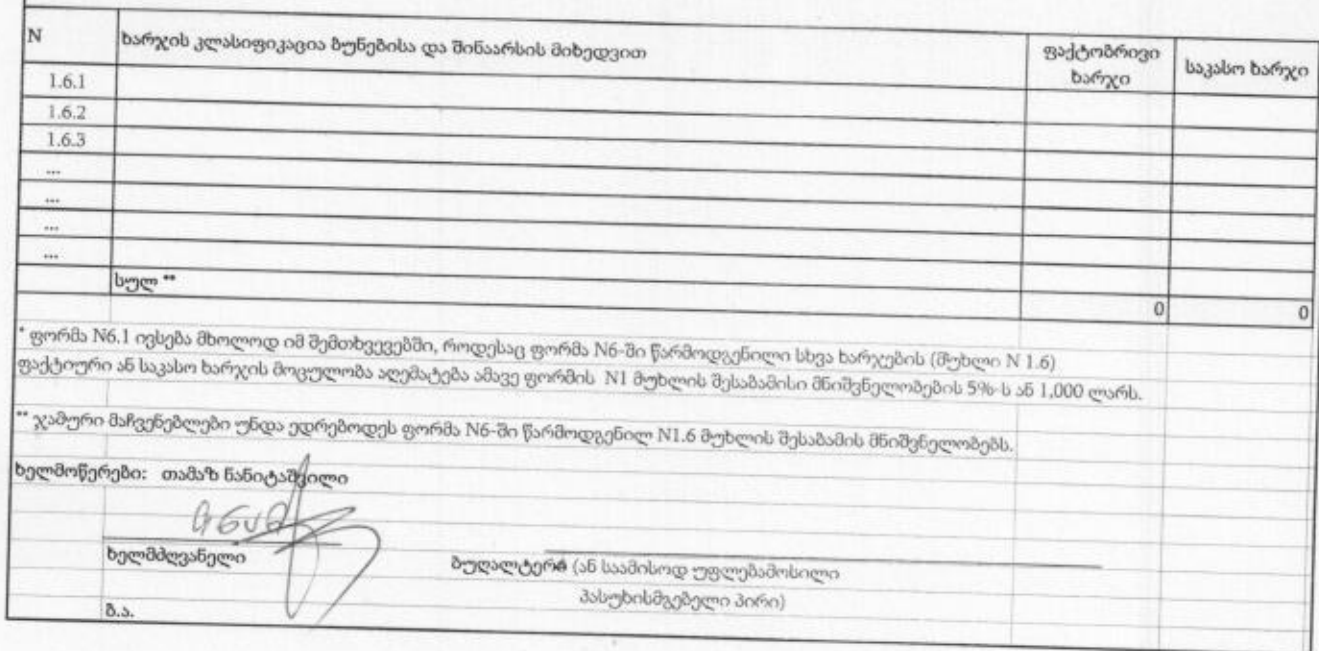 N ხარჯის კლასიფიკაცია ბუნებისა და შინაარსის მიხედვით ფაქტობრივი ხარჯი საკასო ხარჯი
1.6.1
1.6.2
1.6.3
...
...
...
...
სულ **
0 0
* ფორმა N6.1 ივსება მხოლოდ იმ შემთხვევებში, როდესაც ფორმა N6-ში წარმოდგენილი სხვა ხარჯების (მუხლი N 1.6)
ფაქტიური ან საკასო ხარჯის მოცულობა აღემატება ამავე ფორმის N1 მუხლის შესაბამისი მნიშვნელობების 5%-ს ან 1,000 ლარს.
** ჯამური მაჩვენებლები უნდა ედრებოდეს ფორმა N6-ში წარმოდგენილ N1.6 მუხლის შესაბამის მნიშვნელობებს.
ხელმოწერები: თამაზ ნანიტაშვილი
ხელმძღვანელი
ბუღალტერი (ან საამისოდ უფლებამოსილი
პასუხისმგებელი პირი)
ბ.ა.